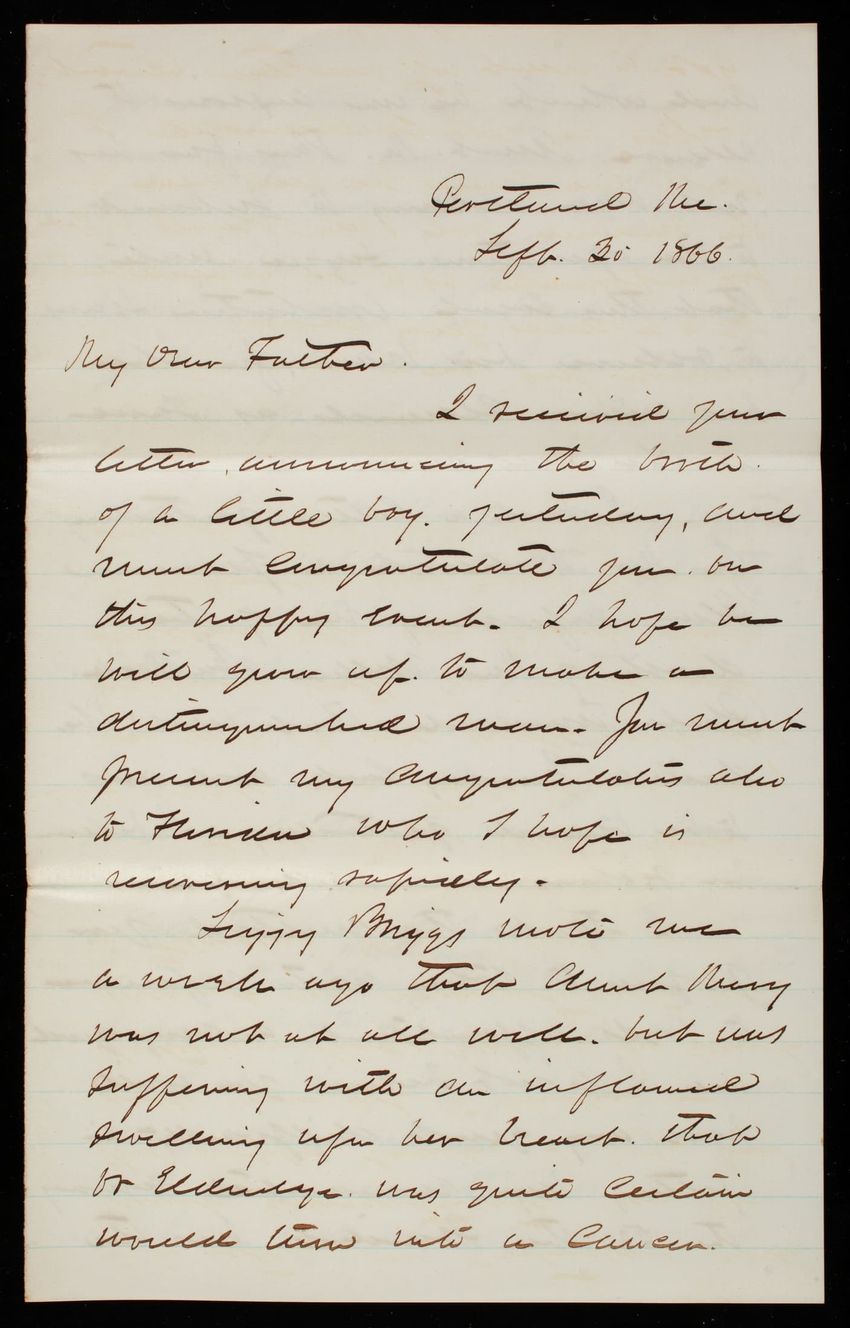 Portland Me.
Sept. 30 1866.
My Dear Father.
I received your
letter, announcing the birth
of a little boy. yesterday, and
must congratulate you. on
this happy event. I hope he
will grow up. to make a
distinguished man. You must
present my congratulations also
to who I hope is
recovering rapidly.
Lizzy Briggs wrote me
a week ago that Aunt Mary
was not at all well. but was
suffering with an inflamed
swelling upon her breast. that
Dr Eldridge. was quite certain
would turn into a cancer.